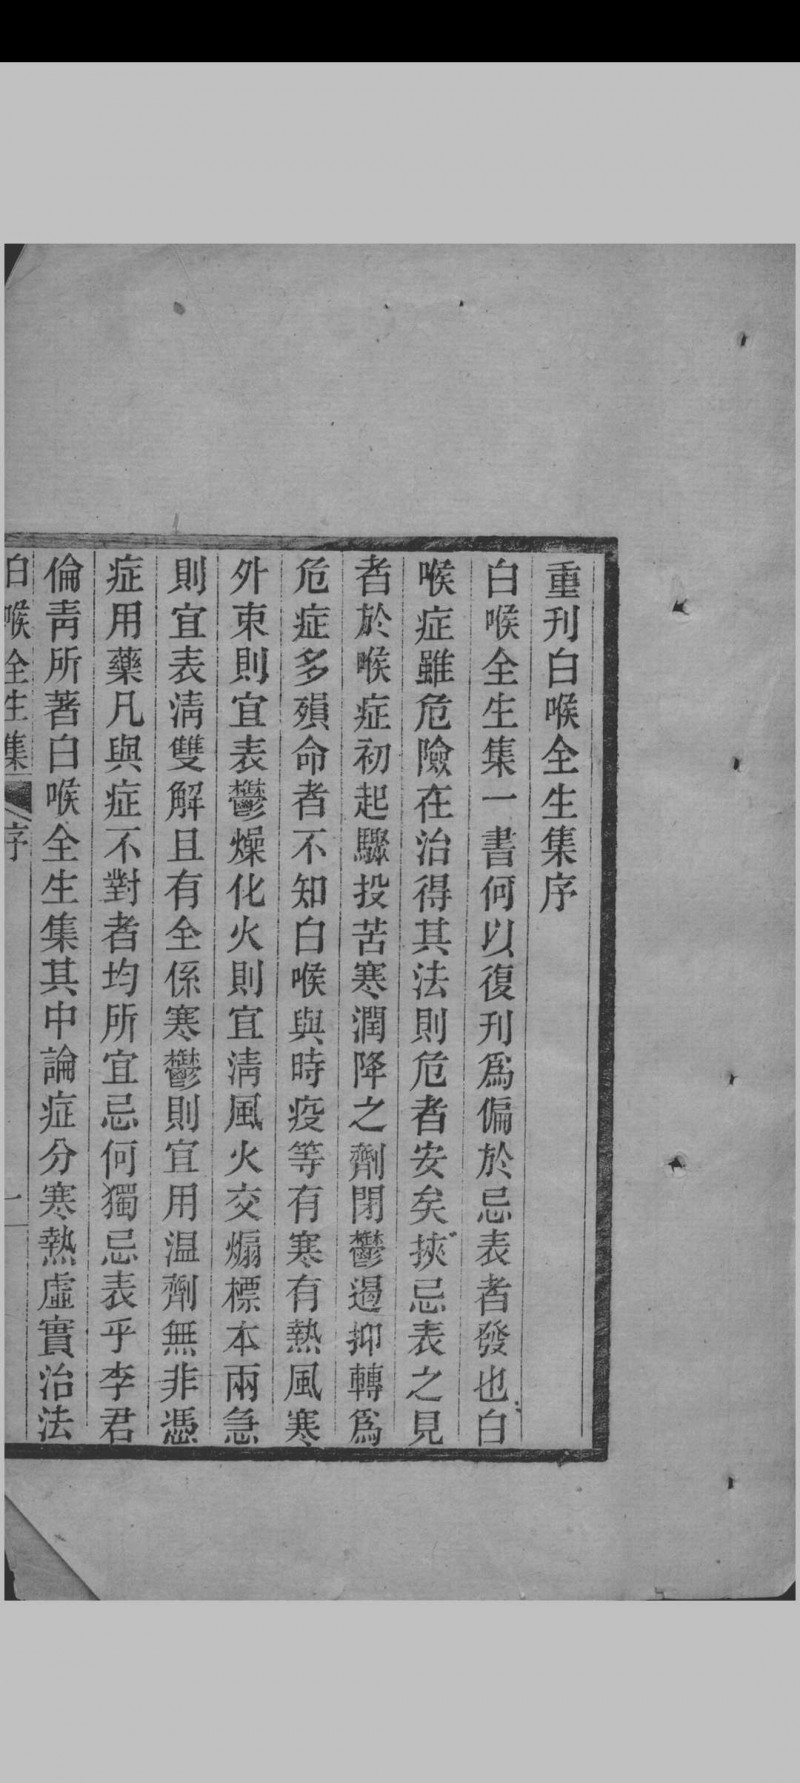 重刊白喉全生集序
白喉全生集一書何以復刊爲偏於忌表者發也白
喉症雖危險在治得其法則危者安矣挾忌表之見
者於喉症初起驟投苦寒潤降之劑閉鬱遏抑轉爲
危症多殞命者不知白喉與時疫等有寒有熱風寒
外束則宜表鬱燥化火則宜清風火交煽標本兩急
則宜表清雙解且有全係寒鬱則宜用温劑無非憑
症用藥凡與症不對者均所宜忌何獨忌表乎李君
倫青所著白喉全生集其中論症分寒熱虛實治法
白喉全生集
序
一